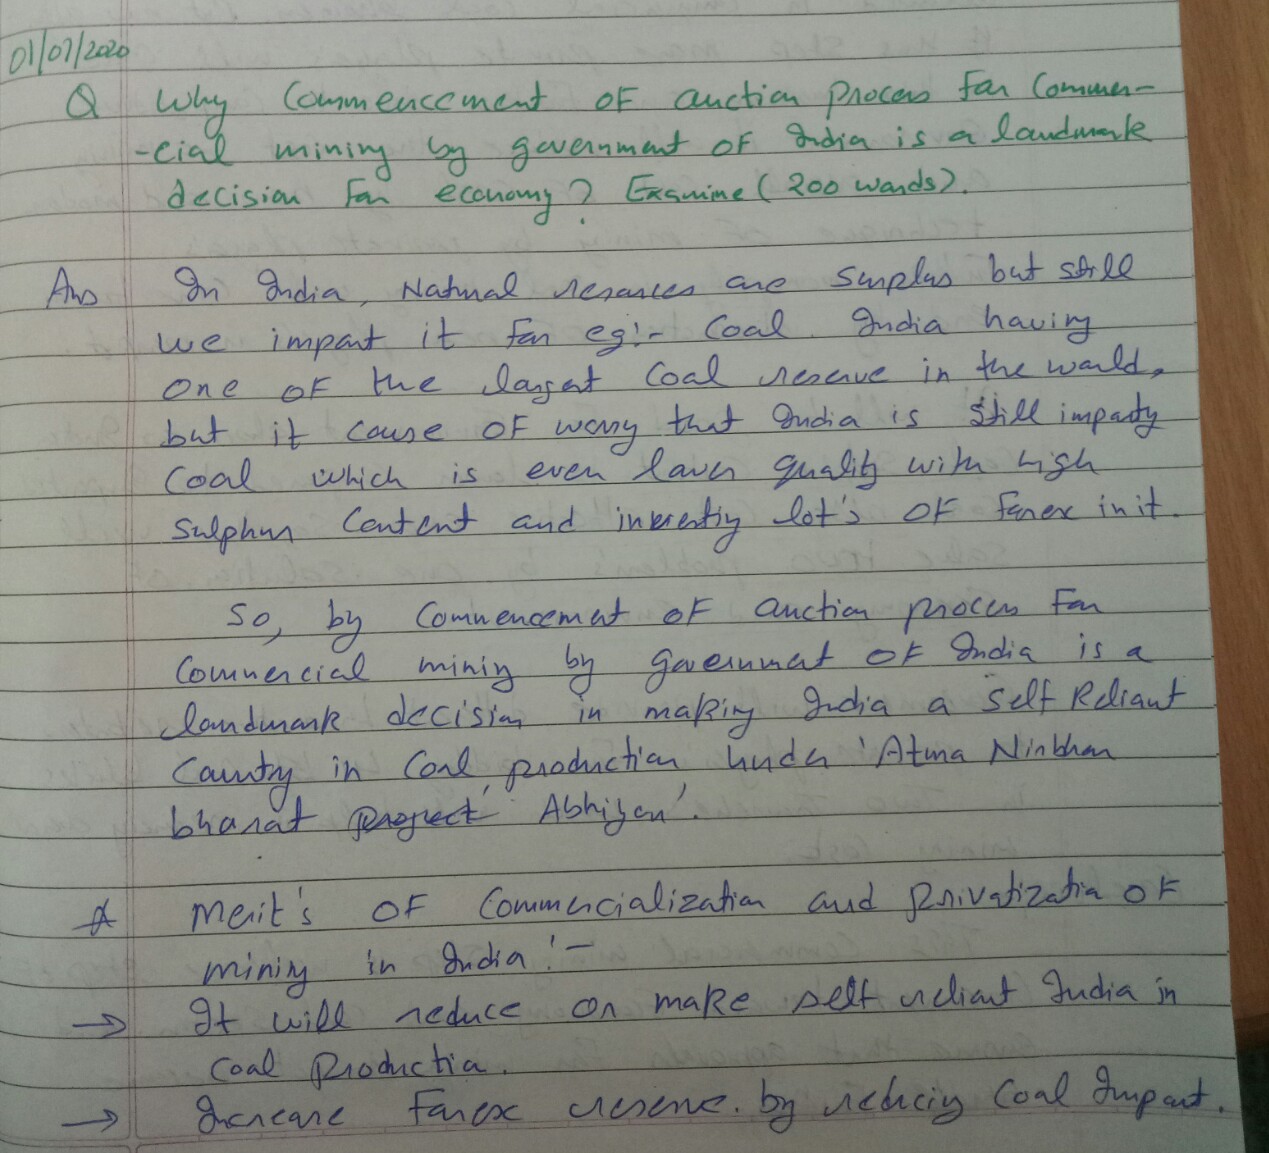 01/07/2020
Q Why Commencement OF auction process for Commer-
-cial mining by government OF India is a landmark
decision for economy? Examine (200 words).
Ans In India, Natural resources are Surplus but still
we import it for eg:- Coal. India having
one OF the largest Coal reserve in the world,
but it cause OF worry that India is still importing
Coal which is even lower quality with high
Sulphur Content and investing lot's OF forex in it.
So, by Commencement OF auction process For
Commercial mining by government OF India is a
landmark decision in making India a Self Reliant
Country in Coal production under 'Atma Nirbhar
bharat project Abhiyan'.
Merit's OF Commercialization and Privatization OF
mining in India:-
→ It will reduce or make self reliant India in
Coal Production.
→ Increase Forex reserve. by reducing Coal Import.